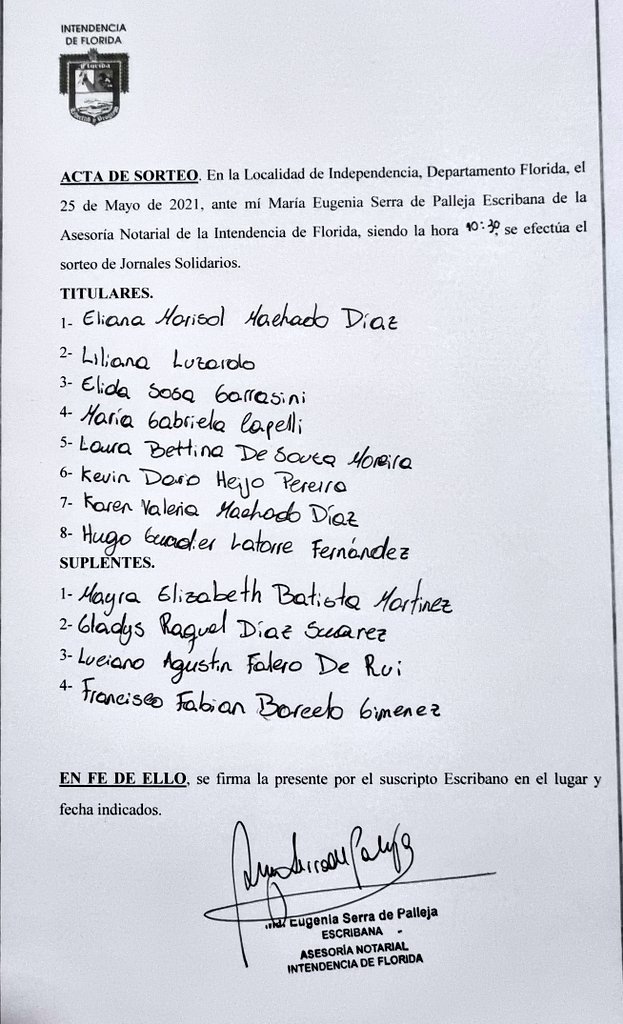 INTENDENCIA
DE FLORIDA
Florida
ACTA DE SORTEO. En la Localidad de Independencia, Departamento Florida, el
25 de Mayo de 2021, ante mí María Eugenia Serra de Palleja Escribana de la
Asesoría Notarial de la Intendencia de Florida, siendo la hora 10:30, se efectúa el
sorteo de Jornales Solidarios.
TITULARES.
1- Eliana Marisol Machado Díaz
2- Liliana Luzardo
3- Elida Sosa Garrasini
4- María Gabriela Capelli
5- Laura Bettina De Souza Moreira
6- Kevin Dario Heijo Pereira
7- Karen Valeria Machado Díaz
8- Hugo Latorre Fernández
SUPLENTES.
1- Mayra Elizabeth Batista Martinez
2- Gladys Raquel Díaz Suarez
3- Luciano Agustin Falero De Rui
4- Francisco Fabian Barceló Gimenez
EN FE DE ELLO, se firma la presente por el suscripto Escribano en el lugar y
fecha indicados.
Ma. Eugenia Serra de Palleja
ESCRIBANA -
ASESORÍA NOTARIAL
INTENDENCIA DE FLORIDA